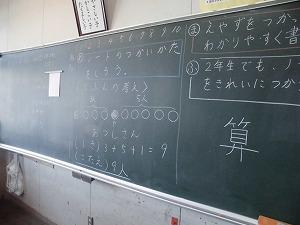 1 2 3 4 5 6 7 8 9 10
ノートのつかいかた
をしろう。
3人
5人
あつしさん
(しき) 3+5+1=9
(こたえ) 9人
えやずをつか
わかりやすく書
2年生でも、ノ
をきれいにつか
算